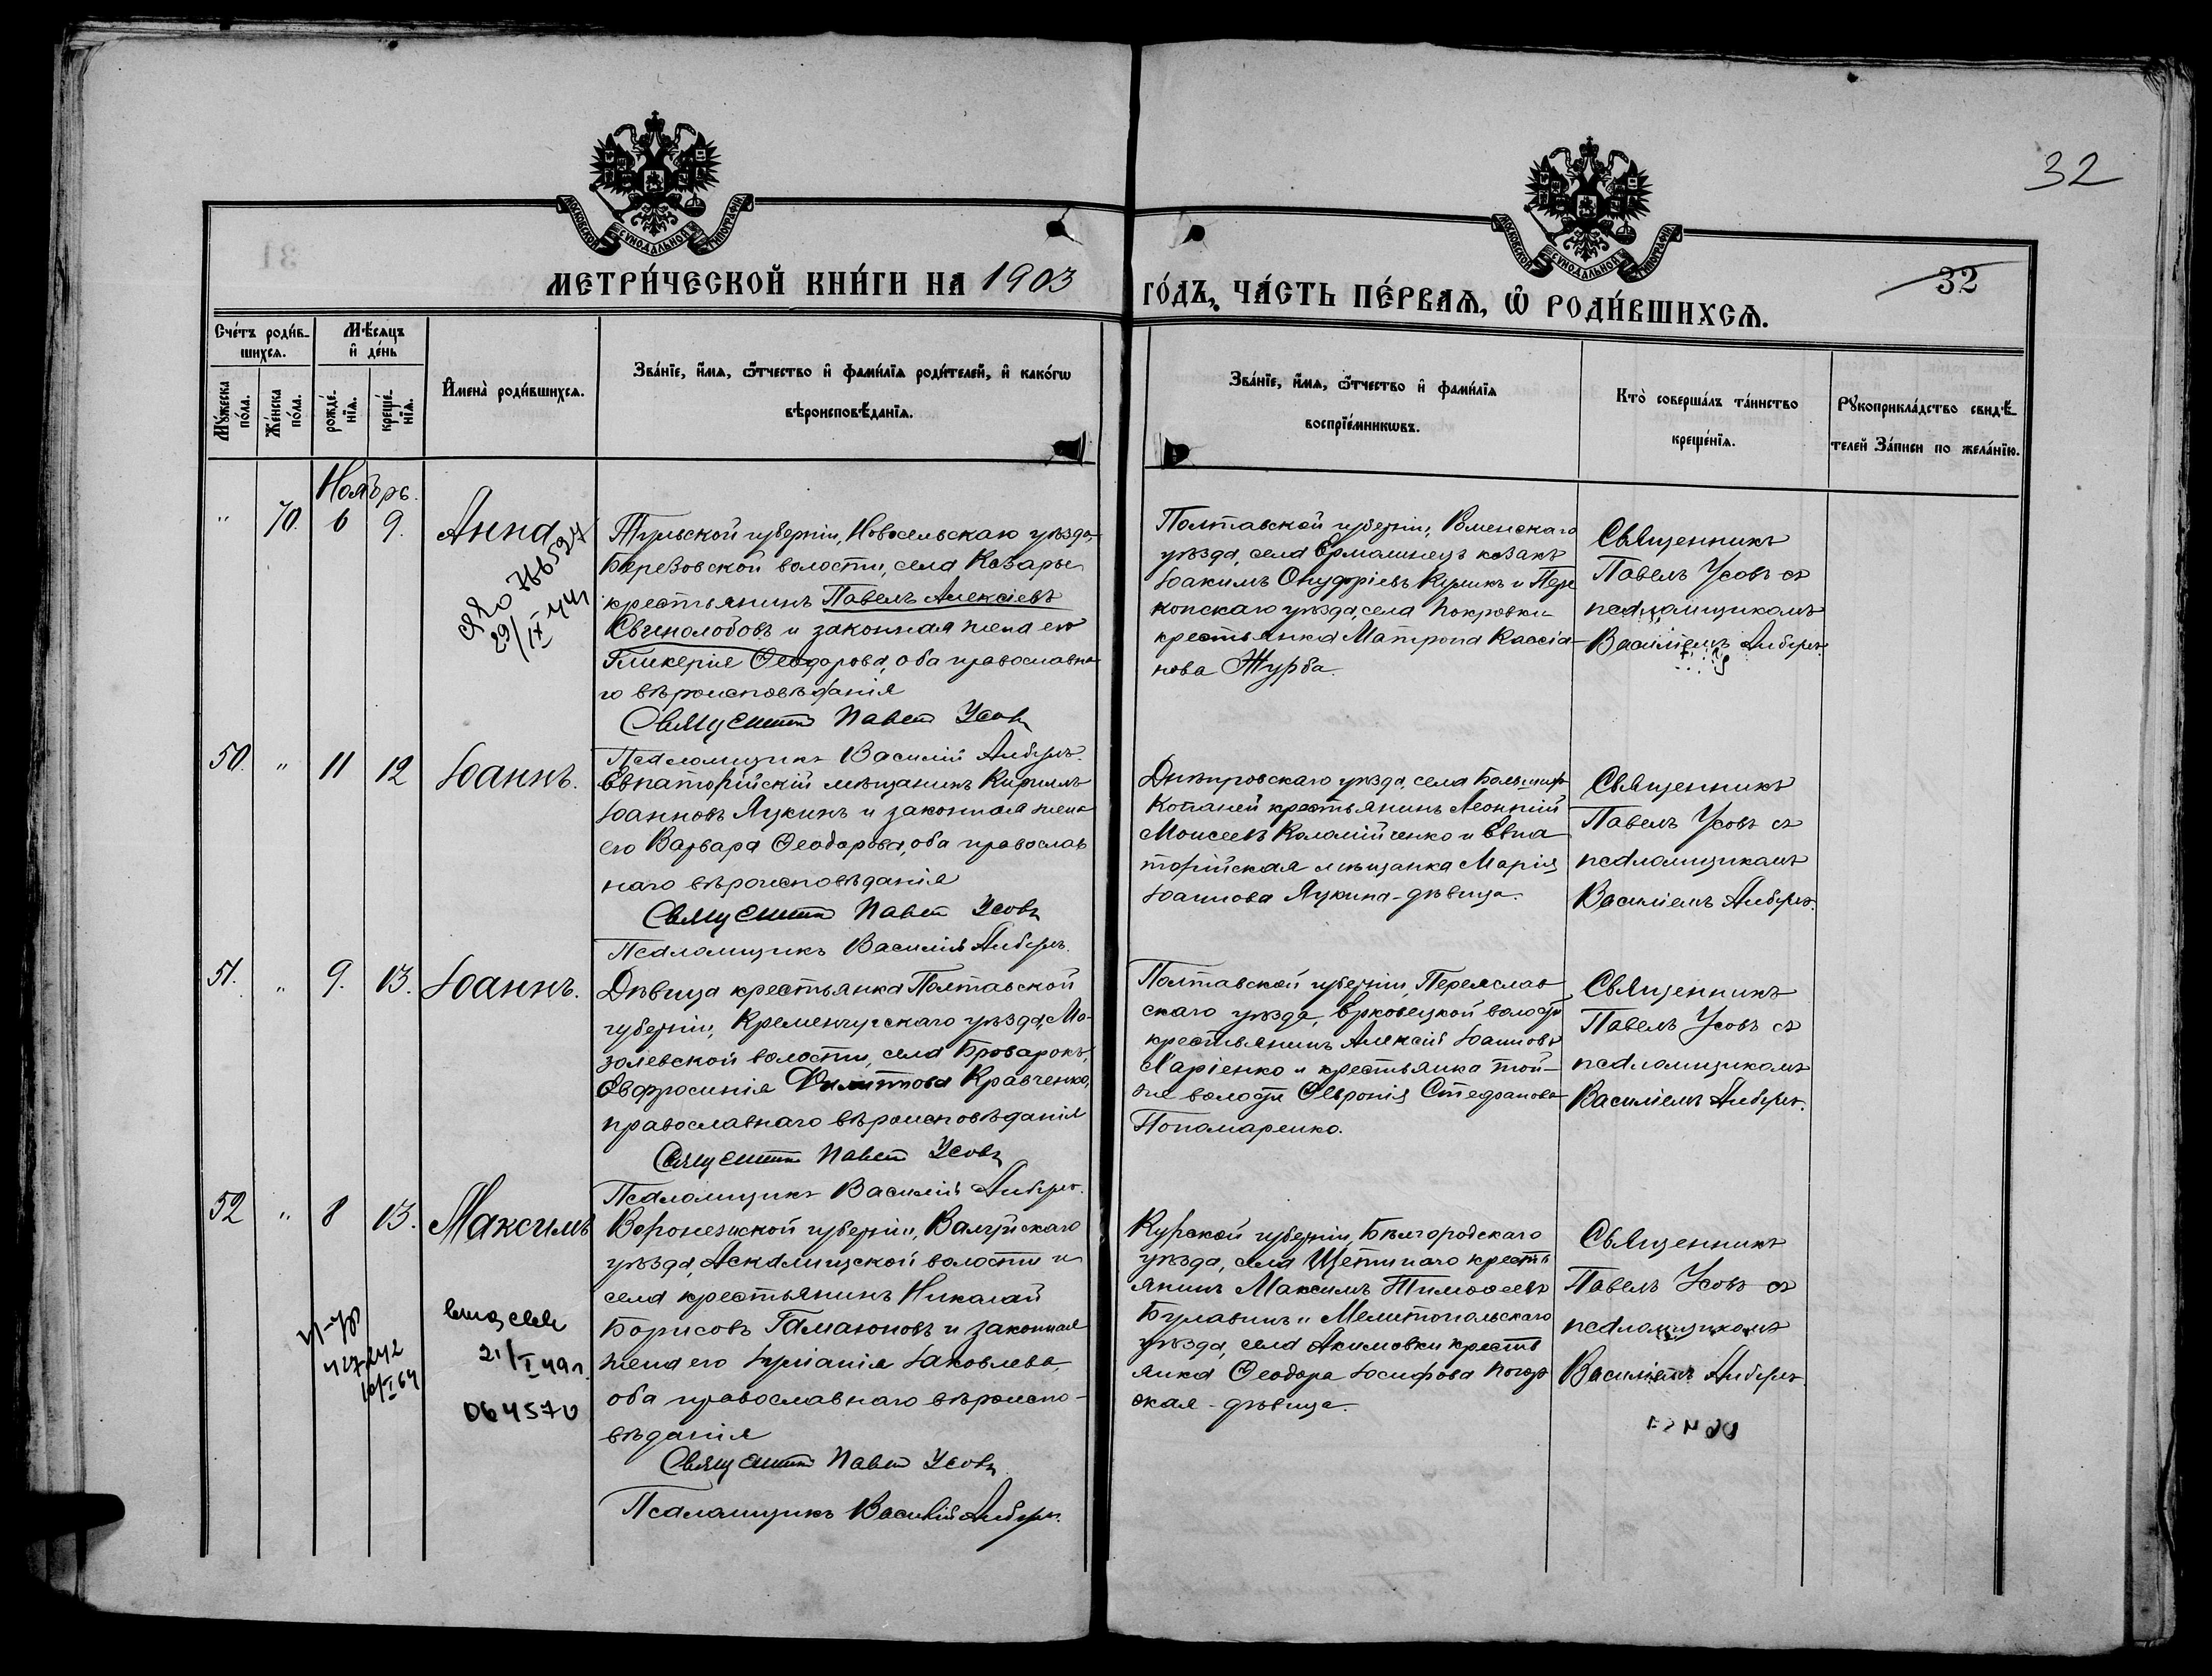 32
МОСКОВСКОЙ СѴНОДАЛЬНОЙ ТИПОГРАФІИ
МОСКОВСКОЙ СѴНОДАЛЬНОЙ ТИПОГРАФІИ
МЕТРИ́ЧЕСКОЙ КНИ́ГИ НА 1903
ГО́ДЪ, ЧА́СТЬ ПЕ́РВАѦ, Ѽ РОДИ́ВШИХСѦ.
32
Сче́тъ роди́в-
шихсѧ.
Мѣ́сѧцъ
и҆ де́нь
Мꙋ́жеска
по́ла.
Же́нска
по́ла.
рожде́-
нїѧ.
креще́-
нїѧ.
И҆мена̀ роди́вшихсѧ.
Зва́нїе, и҆́мѧ, ѻ҆́тчество и҆ фами́лїѧ роди́телей, и҆ како́гѡ
вѣроисповѣ́данїѧ.
Зва́нїе, и҆́мѧ, ѻ҆́тчество и҆ фами́лїѧ
воспрїе́мникѡвъ.
Кто̀ соверша́лъ та́инство
креще́нїѧ.
Рꙋкоприкла́дство свидѣ́-
телей за́писи по жела́нїю.
Ноябрь.
" 70. 6 9. Анна
Тульской губерніи, Новосельскаго уѣзда,
Березовской волости, села Козарь
крестьянинъ Павелъ Алексіевъ
Свинолобовъ и законная жена его
Гликерія Ѳеодорова, оба православна-
го вѣроисповѣданія
Священникъ Павелъ Усовъ
Псаломщикъ Василій
Полтавской губерніи, Роменскаго
уѣзда, села казакъ
Іоакимъ Онуфріевъ Куликъ и Пере
копскаго уѣзда, села Покровки
крестьянка Матрона Кассіа-
нова Журба.
Священникъ
Павелъ Усовъ съ
псаломщикомъ
Василіемъ
29/IX
50. " 11 12 Іоаннъ.
Евпаторійскій мѣщанинъ Кириллъ
Іоанновъ Лукинъ и законная жена
его Варвара Ѳеодорова, оба православ
наго вѣроисповѣданія
Священникъ Павелъ Усовъ
Псаломщикъ Василій
Днѣпровскаго уѣзда, села Большихъ
Копаней крестьянинъ Леонтій
Моисеевъ Коломійченко и Евпа
торійская мѣщанка Марія
Іоаннова Лукина-дѣвица.
Священникъ
Павелъ Усовъ съ
псаломщикомъ
Василіемъ
51. " 9. 13. Іоаннъ.
Дѣвица крестьянка Полтавской
губерніи, Кременчугскаго уѣзда, Мо-
золевской волости, села Броварокъ,
Евфросинія Кравченко,
православнаго вѣроисповѣданія
Священникъ Павелъ Усовъ
Псаломщикъ Василій
Полтавской губерніи, Переяслав
скаго уѣзда, Ерковецкой волости
крестьянинъ Алексій Іоанновъ
и крестьянка той-
же волости Ѳевронія Стефанова
Пономаренко.
Священникъ
Павелъ Усовъ съ
псаломщикомъ
Василіемъ
52 " 8 13. Максимъ
Воронежской губерніи, Валуйскаго
уѣзда, волости и
села крестьянинъ Николай
Борисовъ Гамаюновъ и законная
жена его Іуліанія Іаковлева,
оба православнаго вѣроиспо-
вѣданія
Священникъ Павелъ Усовъ
Псаломщикъ Василій
Курской губерніи, Бѣлгородскаго
уѣзда, села Щетинаго кресть
янинъ Максимъ Тимоѳеевъ
Булавинъ и Мелитопольскаго
уѣзда, села Акимовки кресть
янка Ѳеодора Іосифова
ская - дѣвица.
Священникъ
Павелъ Усовъ съ
псаломщикомъ
Василіемъ
21/I 49г.
064570
427242
10/I 64